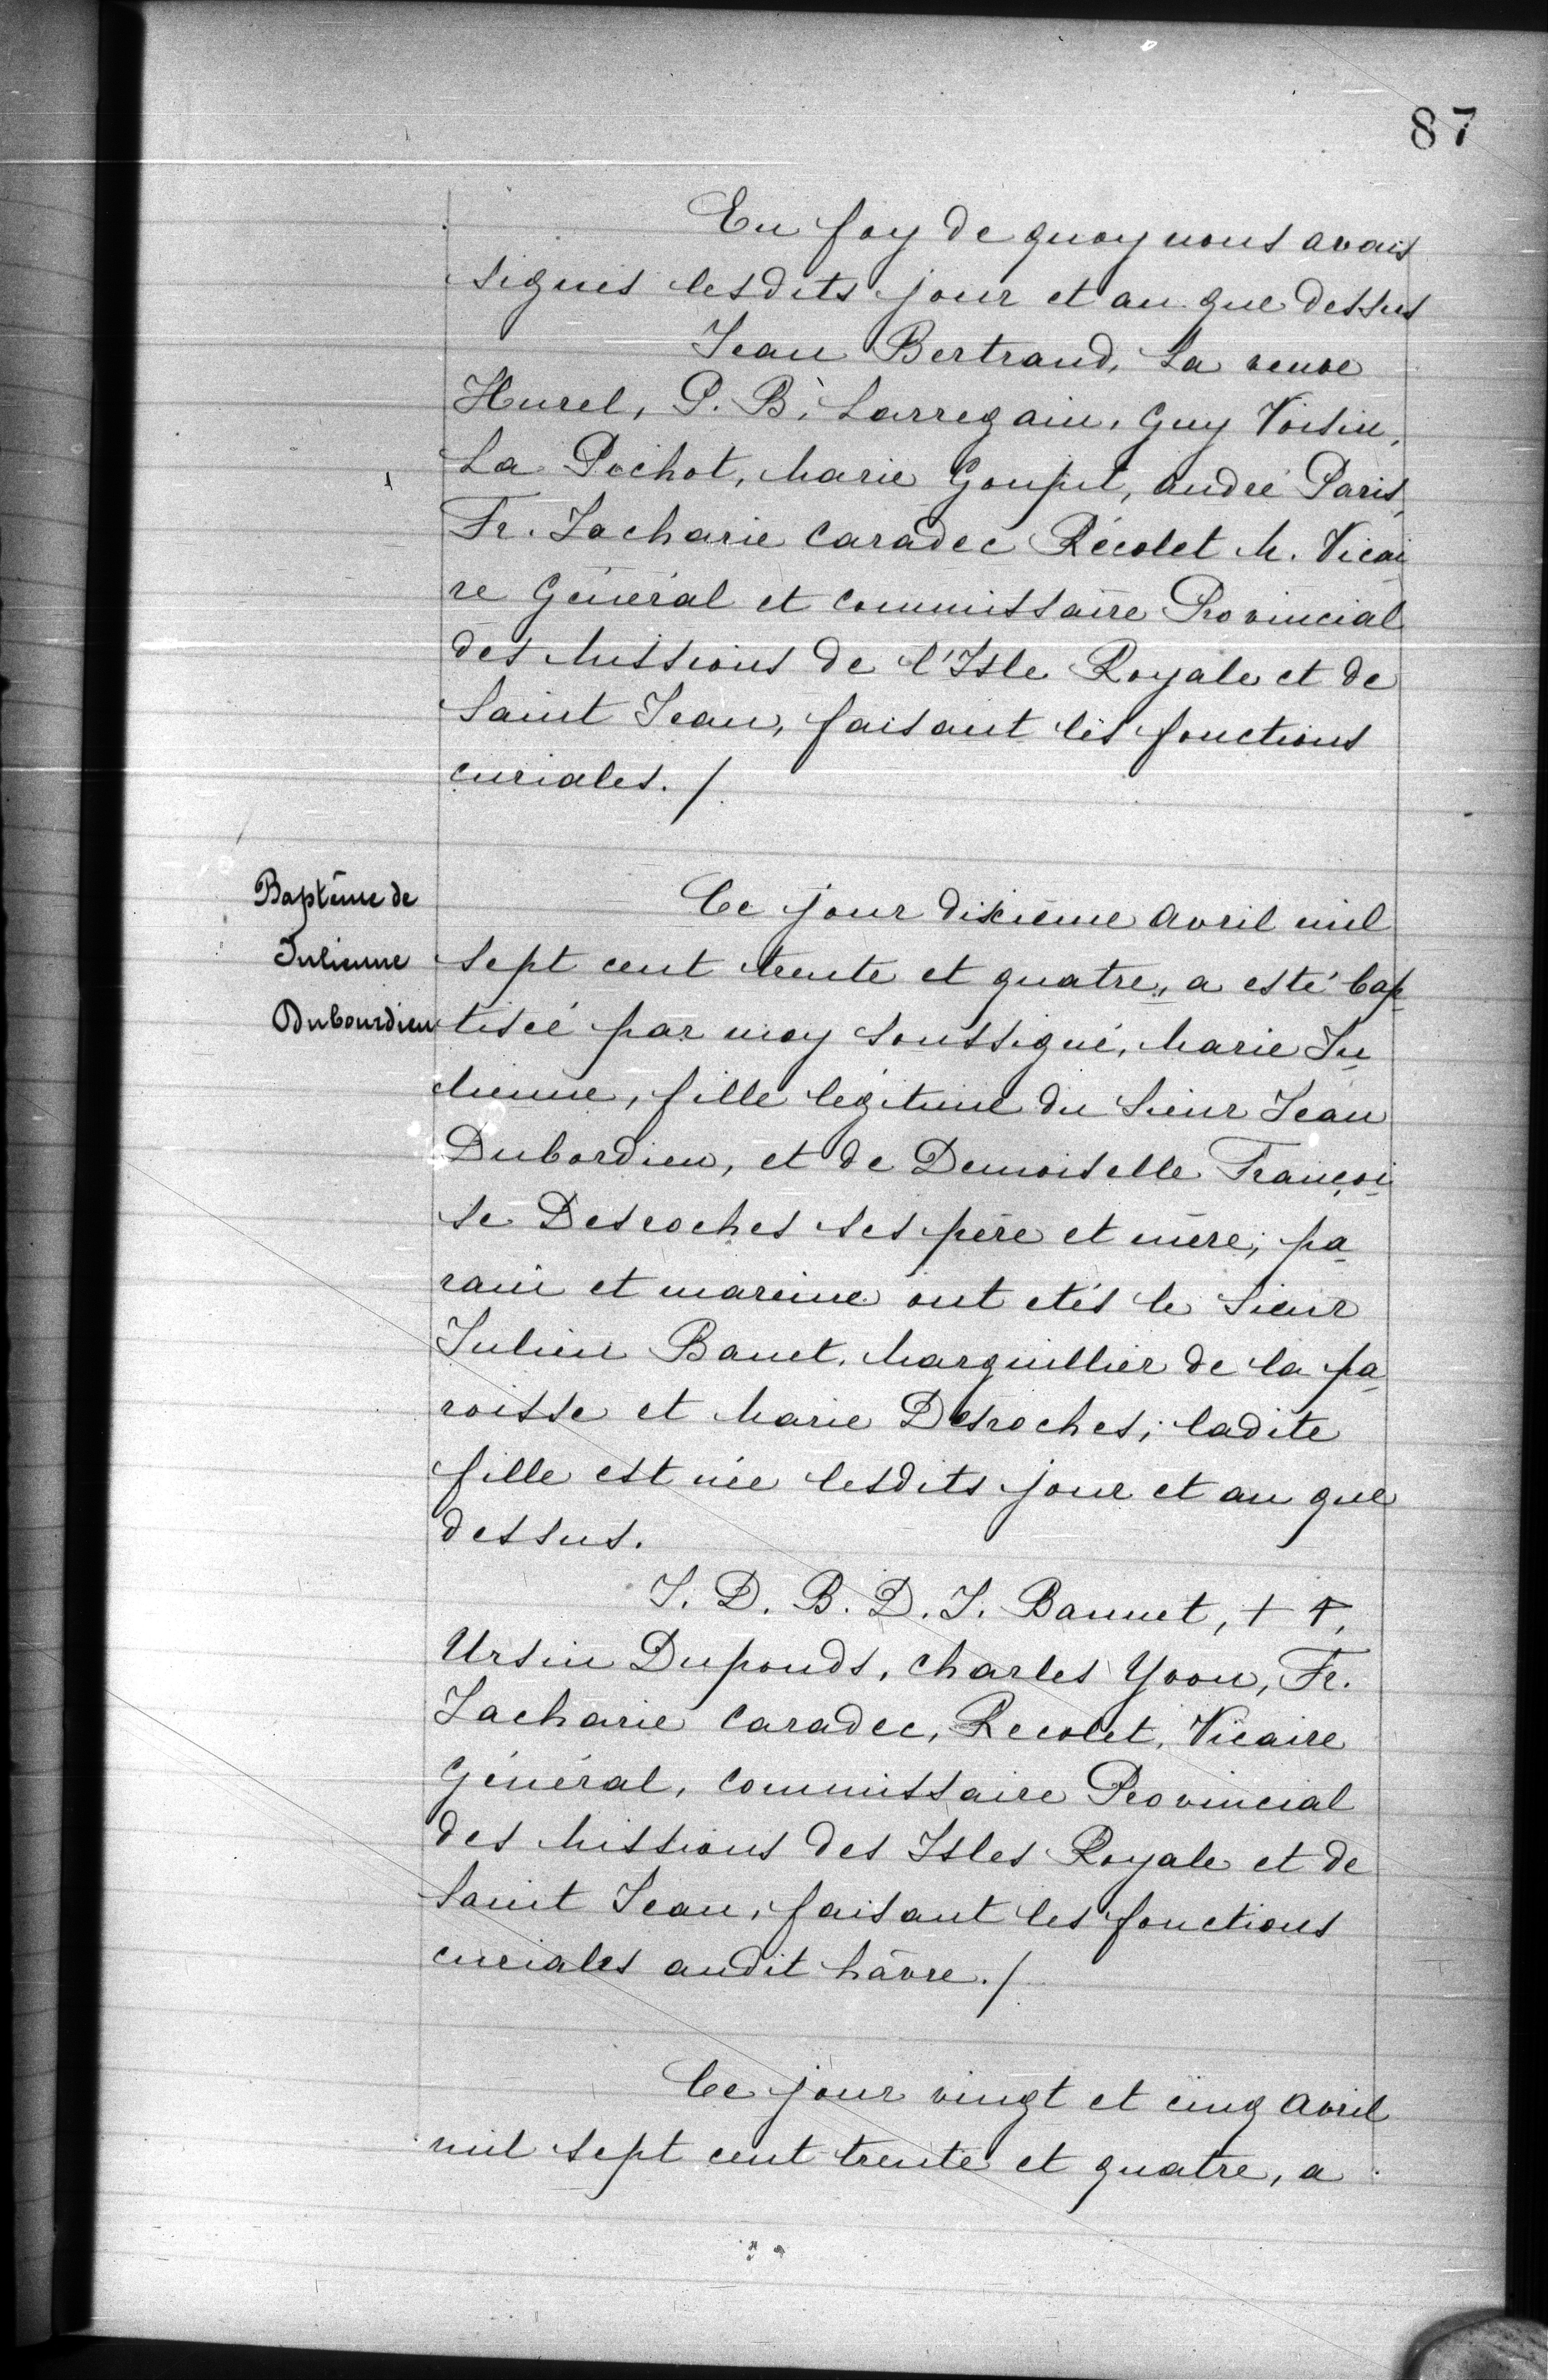 87
En foy de quoy nous avons
signés lesdits jour et an que dessus
Jean Bertrand, La veuve
Hurel, P. B. Larregain, Guy Voisin,
La Pochot, Marie Goupil, André Paris,
Fr. Zacharie Caradec Récolet M. Vicai
re Général et Commissaire Provincial
des Missions de l'Isle Royale et de
Saint Jean, faisant les fonctions
curiales. /
Baptême de
Julienne
Dubourdieu
Ce jour dixième Avril mil
sept cent trente et quatre, a esté bap
tisée par moy soussigné, Marie Ju
lienne, fille legitime du Sieur Jean
Dubordieu, et de Demoiselle Françoi
se Desroches ses père et mère; pa
rain et mareine ont etés le Sieur
Julien Banet, Marguillier de la pa
roisse et Marie Desroches; ladite
fille est née lesdits jour et an que
dessus.
J. D. B. D. J. Bannet, + +,
Ursin Duponds, Charles Yvon, Fr.
Zacharie Caradec, Recolet, Vicaire
Général, Commissaire Provincial
des Missions des Isles Royale et de
Saint Jean, faisant les fonctions
curiales audit hâvre. /
Ce jour vingt et cinq Avril
mil sept cent trente et quatre, a